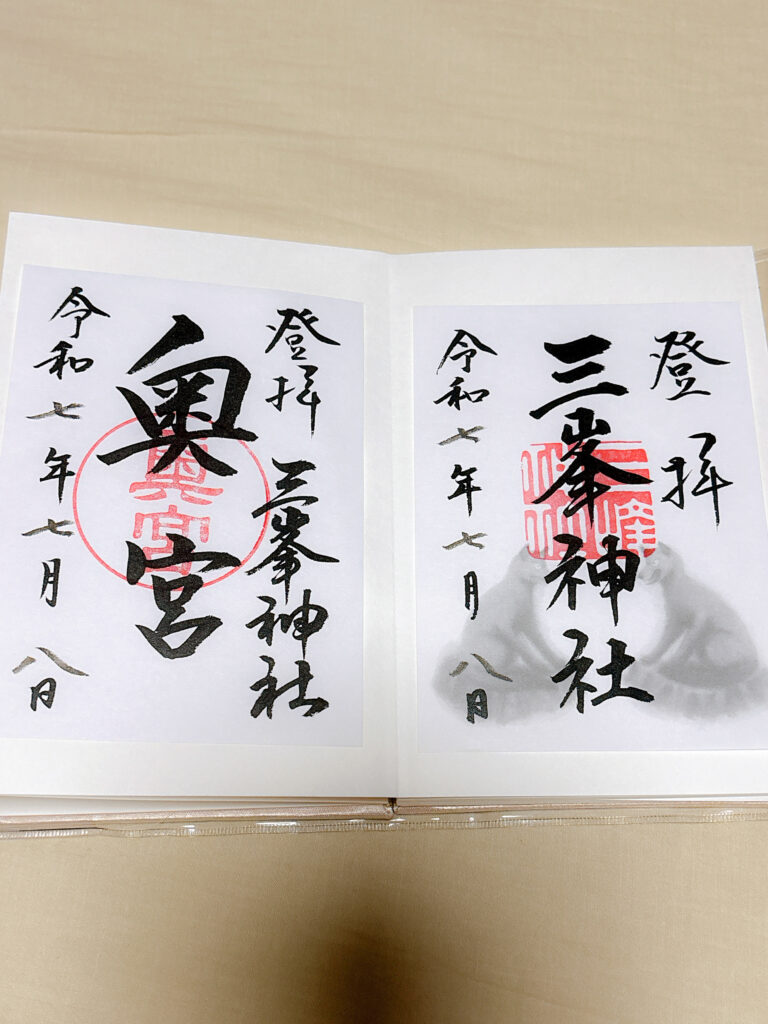 登拝
三峯神社
令和七年七月八日
登拝 三峯神社
奥宮
奥宮
令和七年七月八日